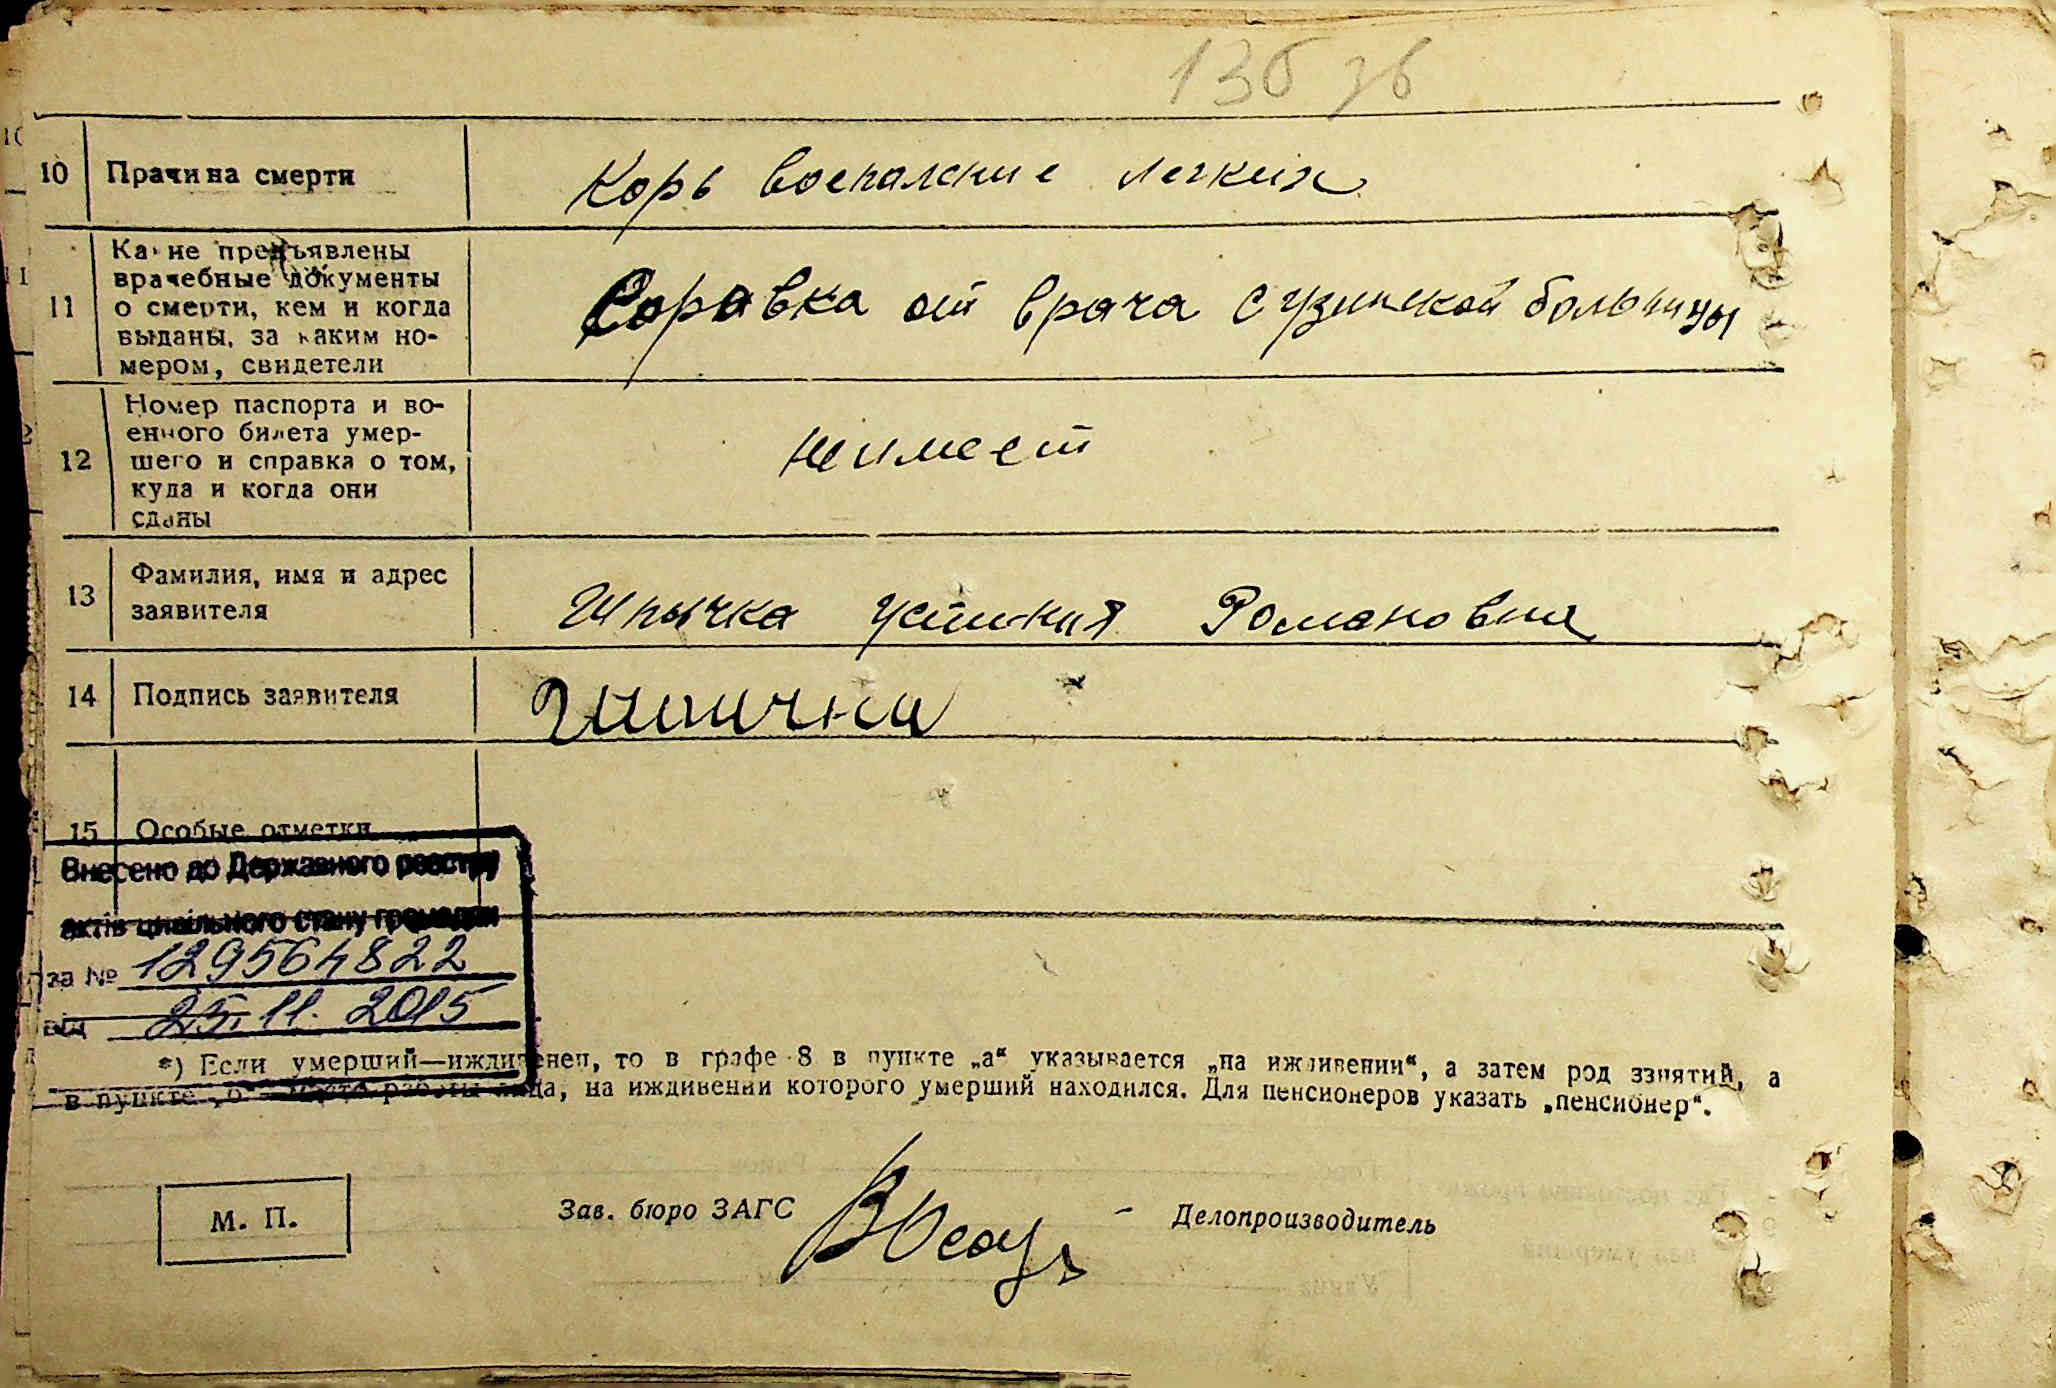 136 зв
10 Причина смерти Корь воспаление легких
11 Какие предъявлены
врачебные документы
о смерти, кем и когда
выданы, за каким но-
мером, свидетели
Справка от врача
больницы
12 Номер паспорта и во-
енного билета умер-
шего и справка о том,
куда и когда они
сданы
не имеет
13 Фамилия, имя и адрес
заявителя
Устиния Романовна
14 Подпись заявителя
15 Особые отметки
Внесено до Державного реєстру
актів цивільного стану громадян
за № 129564822
від 25.11.2015
*) Если умерший—иждивенец, то в графе 8 в пункте „а“ указывается „на иждивении“, а затем род занятий, а
в пункте „б“ место работы лица, на иждивении которого умерший находился. Для пенсионеров указать „пенсионер“.
М. П.
Зав. бюро ЗАГС
Делопроизводитель